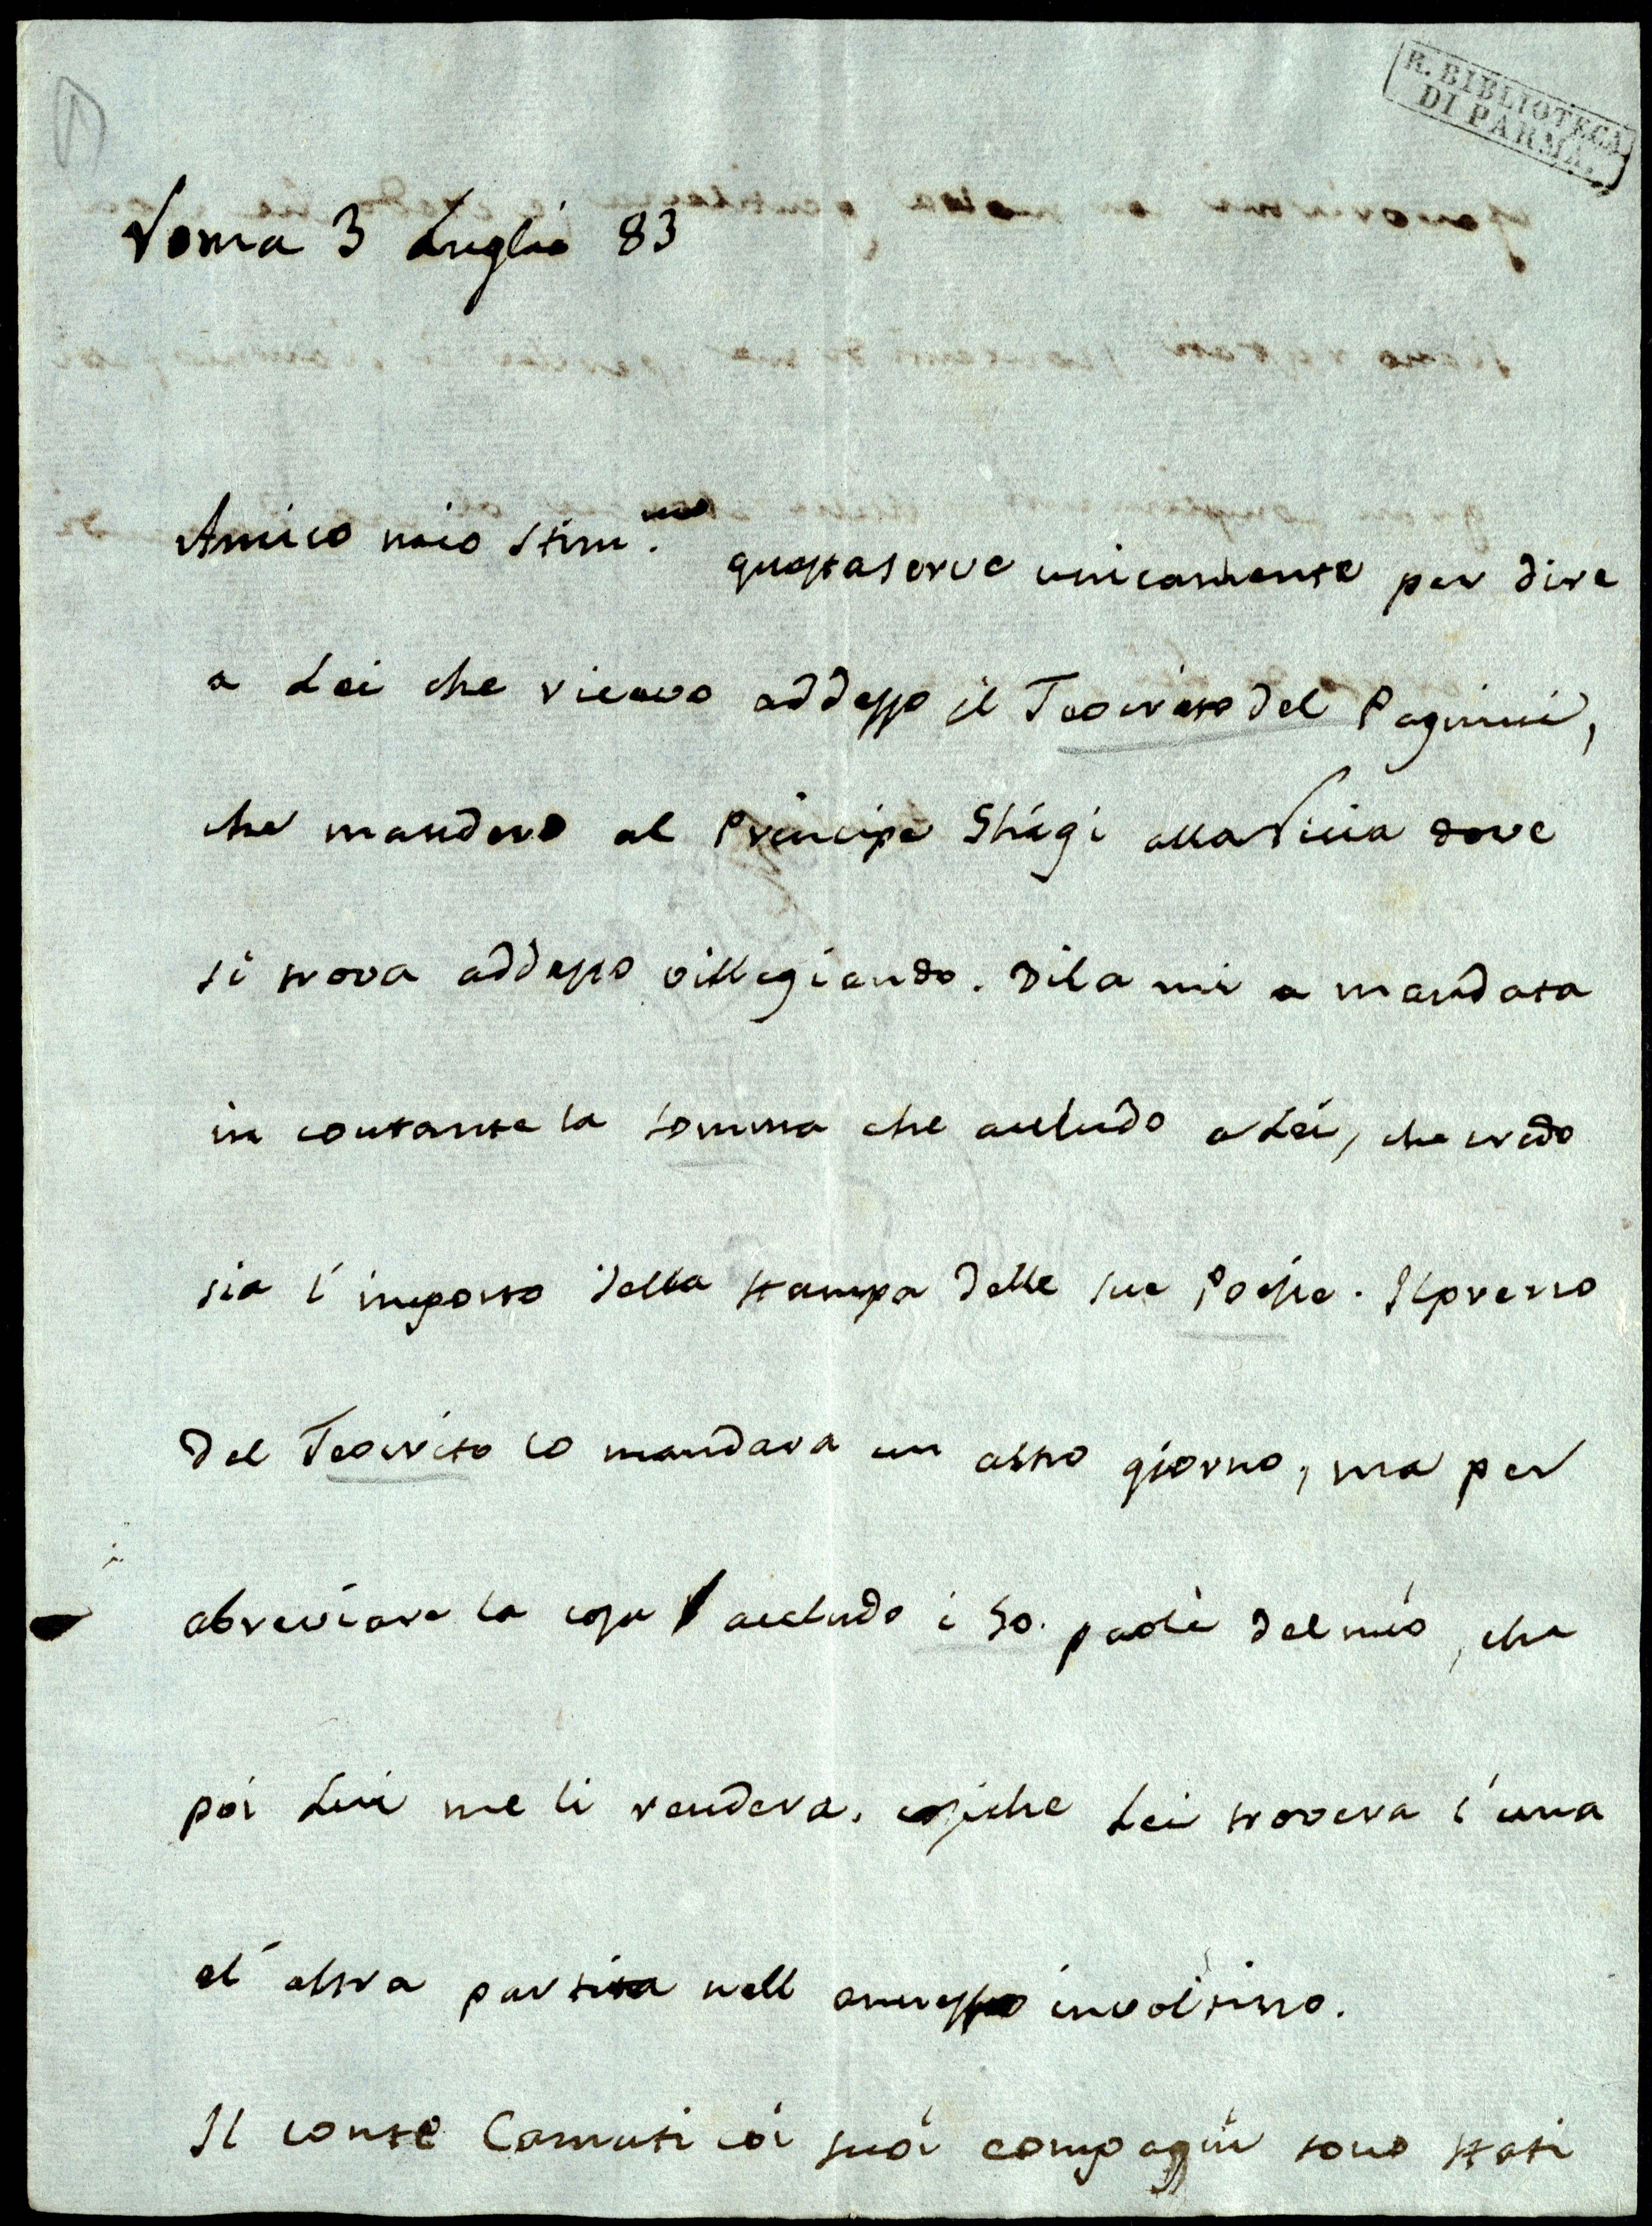 R. BIBLIOTECA
DI PARMA.
Roma 3 Luglio 83
Amico mio stim.mo questa serve unicamente per dire
a Lei che ricevo addesso il Teocrito del Pagnini,
che mandero al Principe Shigi alla Riccia dove
si trova addesso villegiando. Di la mi a mandata
in contante la somma che accludo a Lei, che credo
sia l'importo della stampa delle sue Poesie. Il prezzo
del Teocrito lo mandara un altro giorno, ma per
abreviare la cosa accludo i 30. paoli del mio, che
poi Lui me li rendera. cosiche Lei trovera l'una
el'altra partita nell annesso involtino.
Il conte Camuti coi suoi compagni sono stati